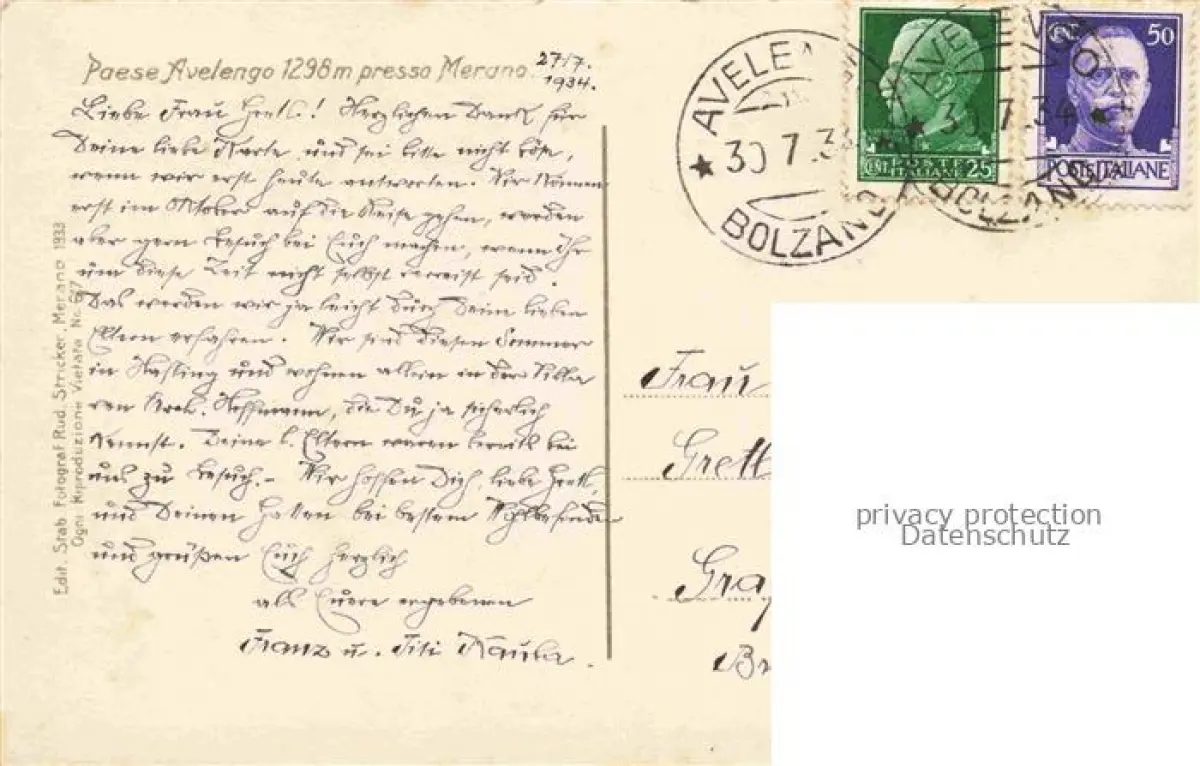 Paese Avelengo 1298 m presso Merano.
27/7.
1934.
Liebe Frau Gretl! Herzlichen Dank für
Deine liebe Karte und sei bitte nicht böse,
wenn wir erst heute antworten. Wir können
erst im Oktober auf die Reise gehen, werden
aber gern Besuch bei Euch machen, wenn Ihr
um diese Zeit nicht selbst verreist seid.
Das werden wir ja leicht durch Deine lieben
Eltern erfahren. Wir sind diesen Sommer
in Hafling und wohnen allein in der Villa
von Hoffmann, die Du ja sicherlich
kennst. Deine l. Eltern waren bereits bei
uns zu Besuch. – Wir hoffen Dich, liebe Gretl,
und Deinen Gatten bei bestem Wohlbefinden
und grüßen Euch herzlich
als Euere ergebenen
Franz u. Titi
Edit. Stab. Fotograf. Rud. Stricker, Merano 1933
Ogni Riproduzione Vietata No.
AVELENGO
30.7.34
BOLZANO
POSTE
ITALIANE 25
AVELENGO
30.7.34
BOLZANO
50
POSTE ITALIANE
Frau
Gretl
Gra
Br
privacy protection
Datenschutz